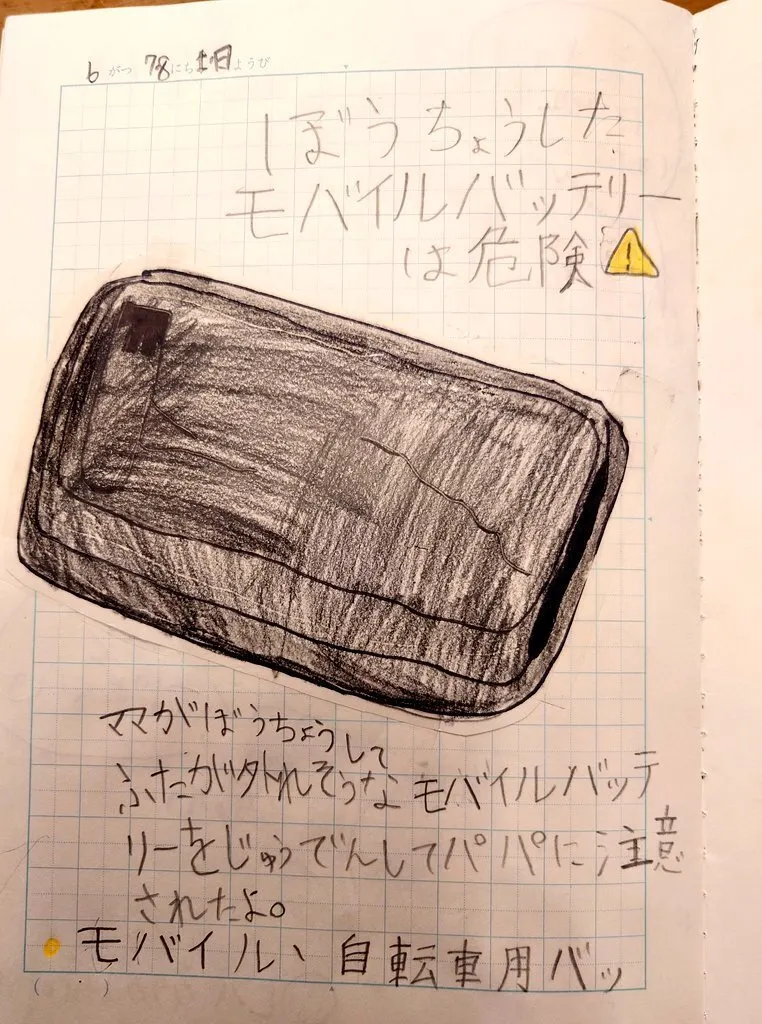 6がつ 7日にち土日ようび
ぼうちょうした
モバイルバッテリー
は危険
ママがぼうちょうして
ふたが外れそうなモバイルバッテ
リーをじゅうでんしてパパに注意
されたよ。
モバイル、自転車用バッ